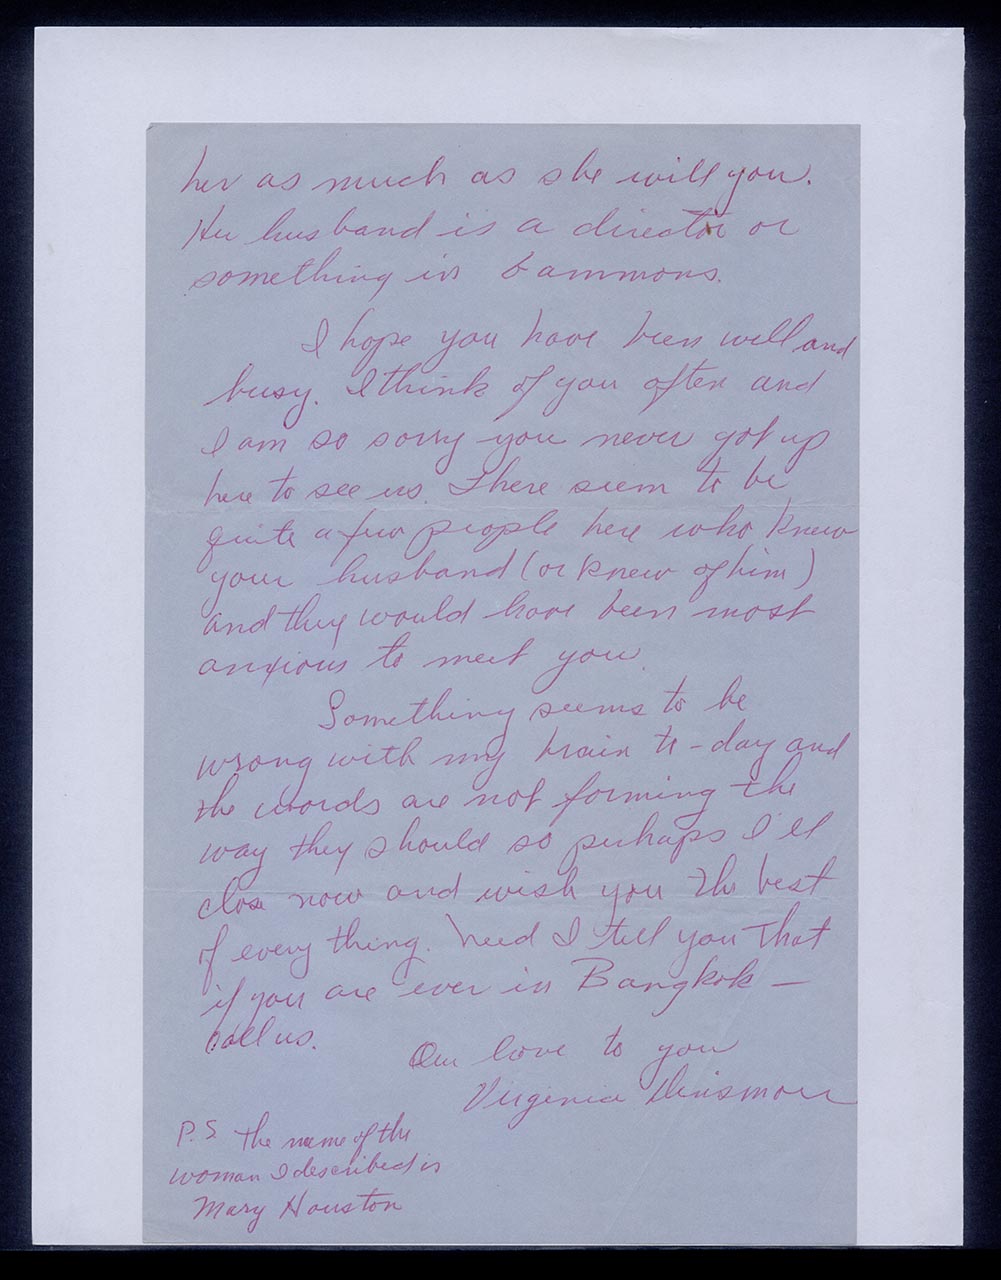 her as much as she will you.
Her husband is a director or
something in Cammons.
I hope you have been well and
busy. I think of you often and
I am so sorry you never got up
here to see us. There seem to be
quite a few people here who knew
your husband (or knew of him)
and they would have been most
anxious to meet you.
Something seems to be
wrong with my brain to-day and
the words are not forming the
way they should so perhaps I'll
close now and wish you the best
of every thing. Need I tell you that
if you are ever in Bangkok —
call us.
Our love to you
Virginia Dinsmore
P.S. The name of the
woman I described is
Mary Houston